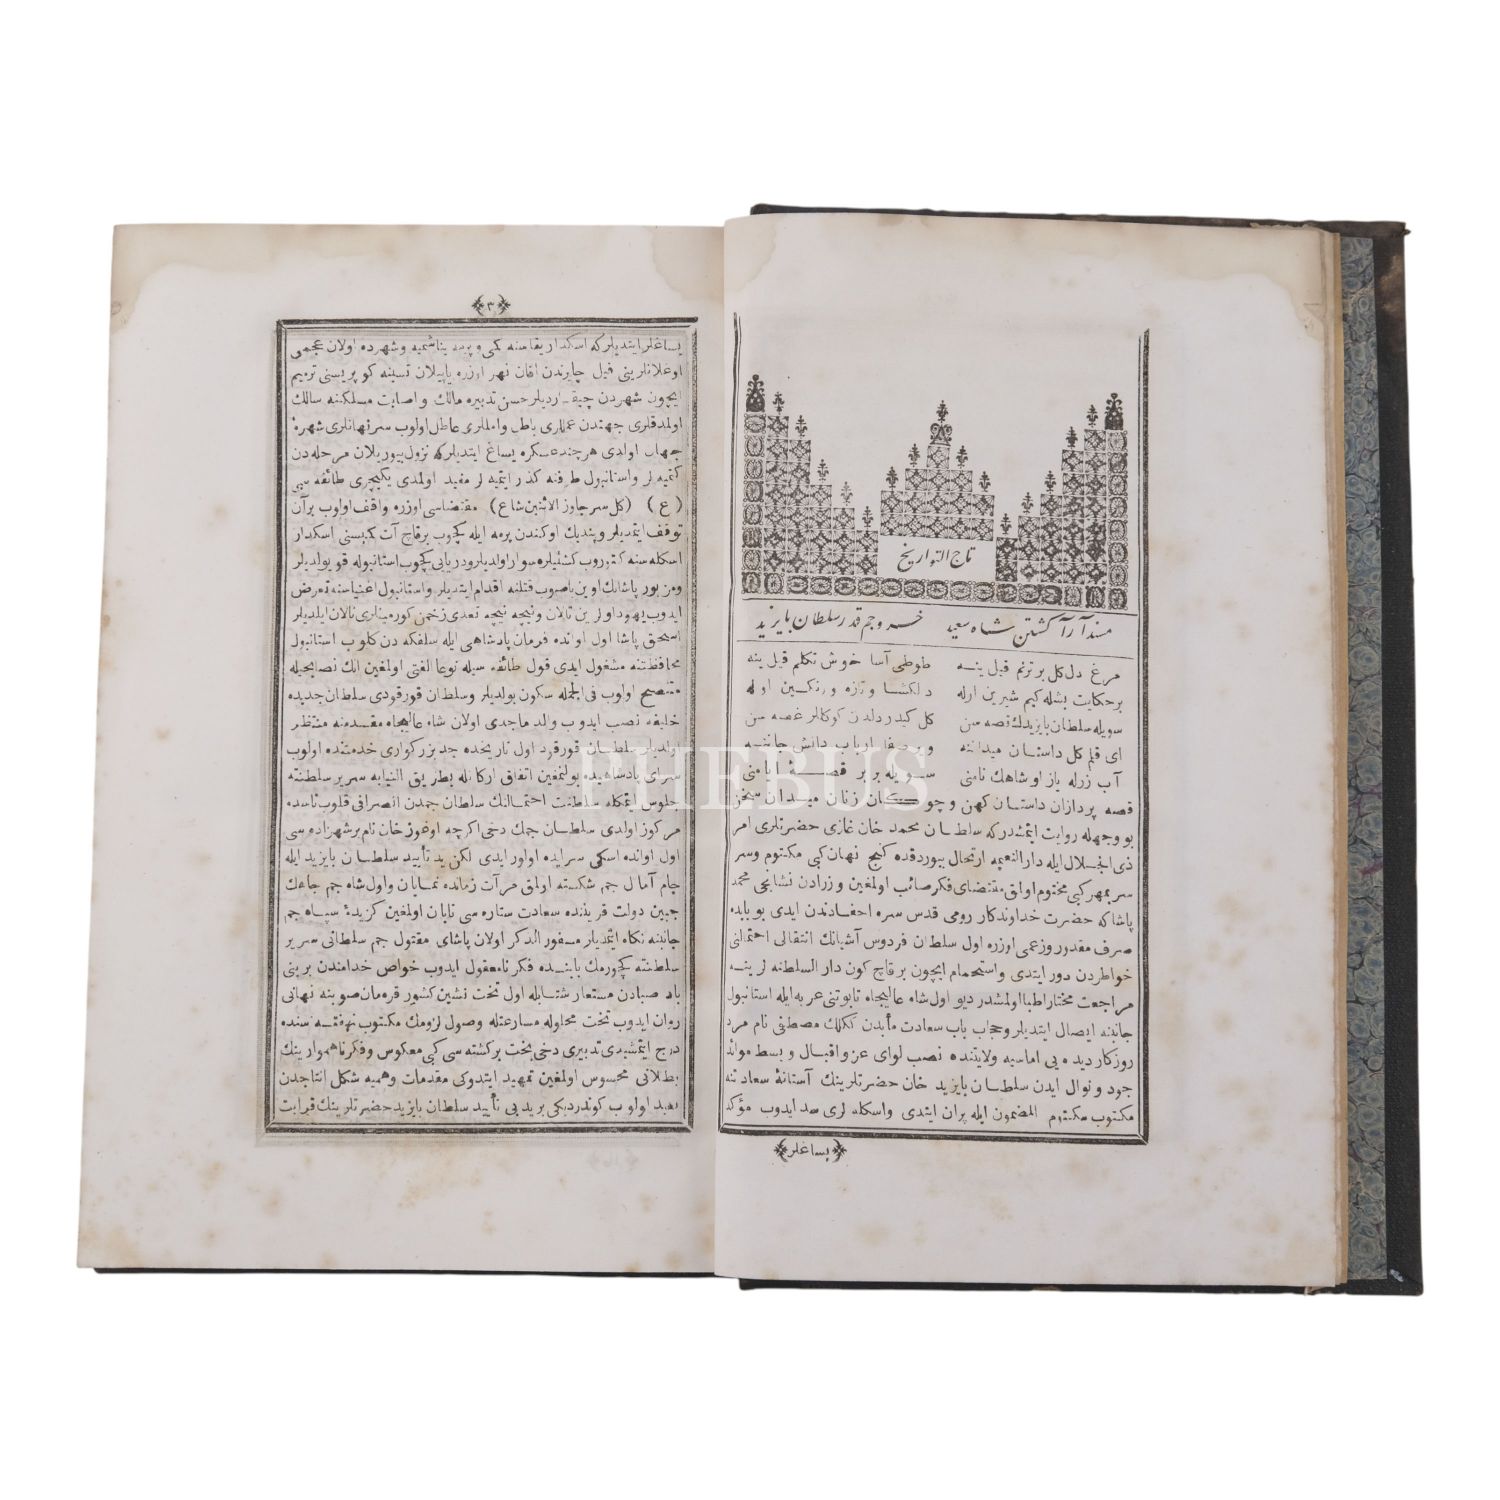 تاج التواريخ
مسند آرا گشتن شاه سعيد خسرو جم قدر سلطان بايزيد
مرغ دل گل بر ترنم قيل ينه طوطى آسا خوش تكلم قيل ينه
بر حكايت بشله كيم شيرين اوله دلكشا و تازه و رنكين اوله
سويله سلطان بايزيدك قصه سن گل كيدر دلدن كوكللر غصه سن
اى قلم گل داستان ميداننه وير صفا ارباب دانش جاننه
آب زرله ياز او شاهك نامنى سويله بر بر قصۀ
قصه پردازان داستان كهن و ميدان سخن
بو وجهله روايت ايتمشدر كه سلطان محمد خان غازى حضرتلرى امر
ذى الجلال ايله دار النعيمه ارتحال بيوردقده كنج نهان كبى مكتوم و سر
سر بمهر كبى مختوم اولمق مقتضاى فكر صائب اولمغين وزرادن نشانجى محمد
پاشا كه حضرت خداوندكار رومى قدس سره احفادندن ايدى بو بابده
صرف مقدور و زعمى اوزره اول سلطان فردوس آشيانك انتقالى احتمالنى
خواطردن دور ايتدى و استحمام ايچون بر قاچ كون دار السلطنه لرينه
مراجعت مختار اطبا اولمشدر ديو اول شاه عاليجاه تابوتنى عربه ايله استانبول
جانبنه ايصال ايتديلر و حجاب باب سعادت مآبدن ككلك مصطفى نام مرد
روزكار ديده يى اماسيه ولايتنده نصب لواى عز و اقبال و بسط موائد
جود و نوال ايدن سلطان بايزيد خان حضرتلرينك آستانۀ سعادتنه
مكتوب مكتوم المضمون ايله پران ايتدى و اسكله لرى سد ايدوب مؤكد
يساغلر
٣
يساغلر ايتديلر كه اسكدار يقاسنه كمى و پرمه يناشميه و شهرده اولان عجمى
اوغلانلرينى فيل چايرندن اقان نهر اوزره ياپيلان كوپريسنى ترميم
ايچون شهردن چيقارديلر حسن تدبيره مالك و اصابت مسلكنه سالك
اولمدقلرى جهتدن عمللرى باطل و املرى عاطل اولوب سر نهانلرى شهرۀ
جهان اولدى هر چند عسكره يساغ ايتديلر كه نزول بيوريلان مرحله دن
كتميه لر و استانبول طرفنه كذر ايتميه لر مفيد اولمدى يكيچرى طائفه سى
(ع) (كل سر جاوز الاثنين شاع) مقتضاسى اوزره واقف اولوب بر آن
توقف ايتمديلر و پنديك اوكندن پرمه ايله كچوب بر قاچ آت كميسنى اسكدار
اسكله سنه كتوروب كشتيلره سوار اولديلر و دريايى كچوب استانبوله قويولديلر
و مزبور پاشانك اوين باصوب قتلنه اقدام ايتديلر و استانبول اغنياسنه تعرض
ايدوب يهود اولرين تالان و نيچه نيچه تعدى زخمن كورمينلرى تالان ايلديلر
اسحق پاشا اول اوانده فرمان پادشاهى ايله سلفكه دن كلوب استانبول
محافظتنه مشغول ايدى قول طائفه سيله نوعا الفتى اولمغين انك نصايحيله
متنصح اولوب فى الجمله سكون بولديلر و سلطان قورقودى سلطان جديده
خليفه نصب ايدوب والد ماجدى اولان شاه عاليجاه مقدمنه منتظر
اولديلر سلطان قورقود اول تاريخده جد بزركوارى خدمتنده اولوب
سراى پادشاهيده بولنمغين اتفاق اركانله بطريق النيابه سرير سلطنته
جلوس ايتمكله سلطنت احتمالنك سلطان جمدن انصرافى قلوب ناسده
مركوز اولدى سلطان جمك دخى اكرچه اوغوز خان نام بر شهزاده سى
اول اوانده اسكى سرايده اولور ايدى لكن يد تأييد سلطان بايزيد ايله
جام آمال جم شكسته اولمق مرآت زمانده نمايان و اول شاه جم جاهك
جبين دولت قريننده سعادت ستاره سى تابان اولمغين كزيدۀ سپاه جم
جانبنه نكاه ايتمديلر مسفور الذكر اولان پاشاى مقتول جم سلطانى سرير
سلطنته كچورمك بابنده فكر نامعقول ايدوب خواص خدامندن برينى
باد صبادن مستعار شتابله اول تخت نشين كشور قرمان صوبنه نهانى
روان ايدوب تخت محاوله مسارعتله وصول لزومك مكتوب نهفته سنده
درج ايتمشيدى تدبيرى دخى بخت بركشته سى كبى معكوس و فكر ناهموارينك
بطلانى محسوس اولمغين تمهيد ايتدوكى مقدمات وهميه شكل انتاجدن
بعيد اولوب كوندرديكى بريد يى تأييد سلطان بايزيد حضرتلرينك قرابت
PHEBUS